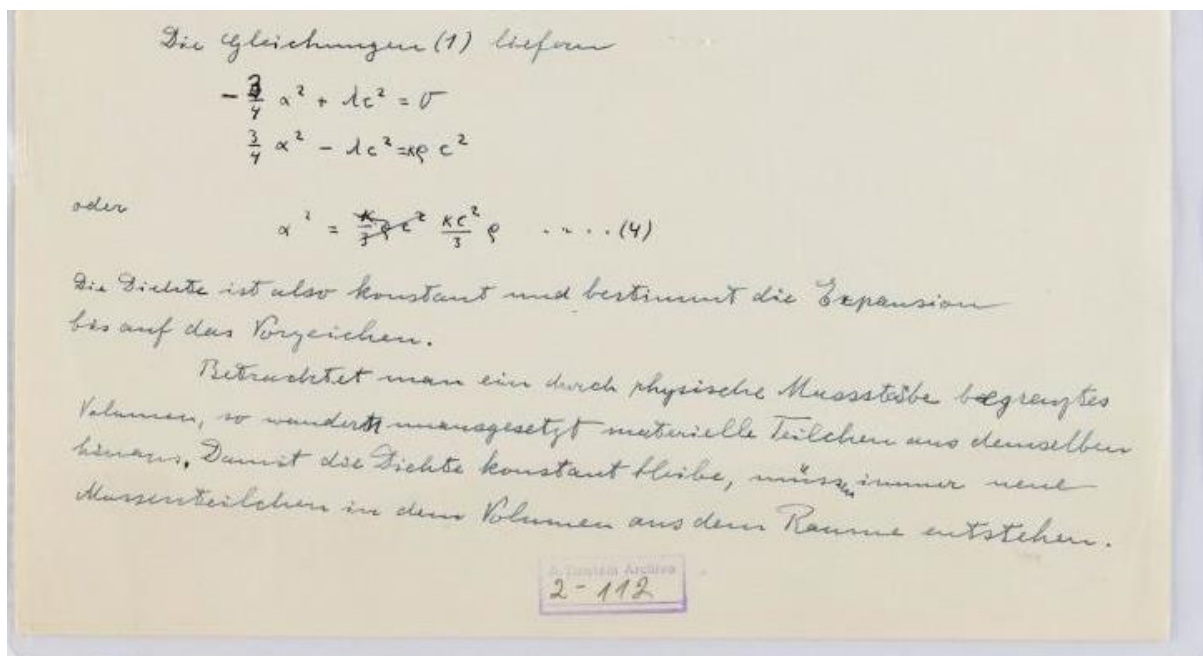 Die Gleichungen (1) liefern
- 3/4 α² + λc² = 0
3/4 α² - λc² = κρ c²
oder
α² = κ/3 ρ c² κc²/3 ρ ....(4)
Die Dichte ist also konstant und bestimmt die Expansion
bis auf das Vorzeichen.
Betrachtet man ein durch physische Massstäbe begrenztes
Volumen, so wandern unausgesetzt materielle Teilchen aus demselben
hinaus. Damit die Dichte konstant bleibe, müssen immer neue
Massenteilchen in dem Volumen aus dem Raume entstehen.
A. Einstein Archive
2-112